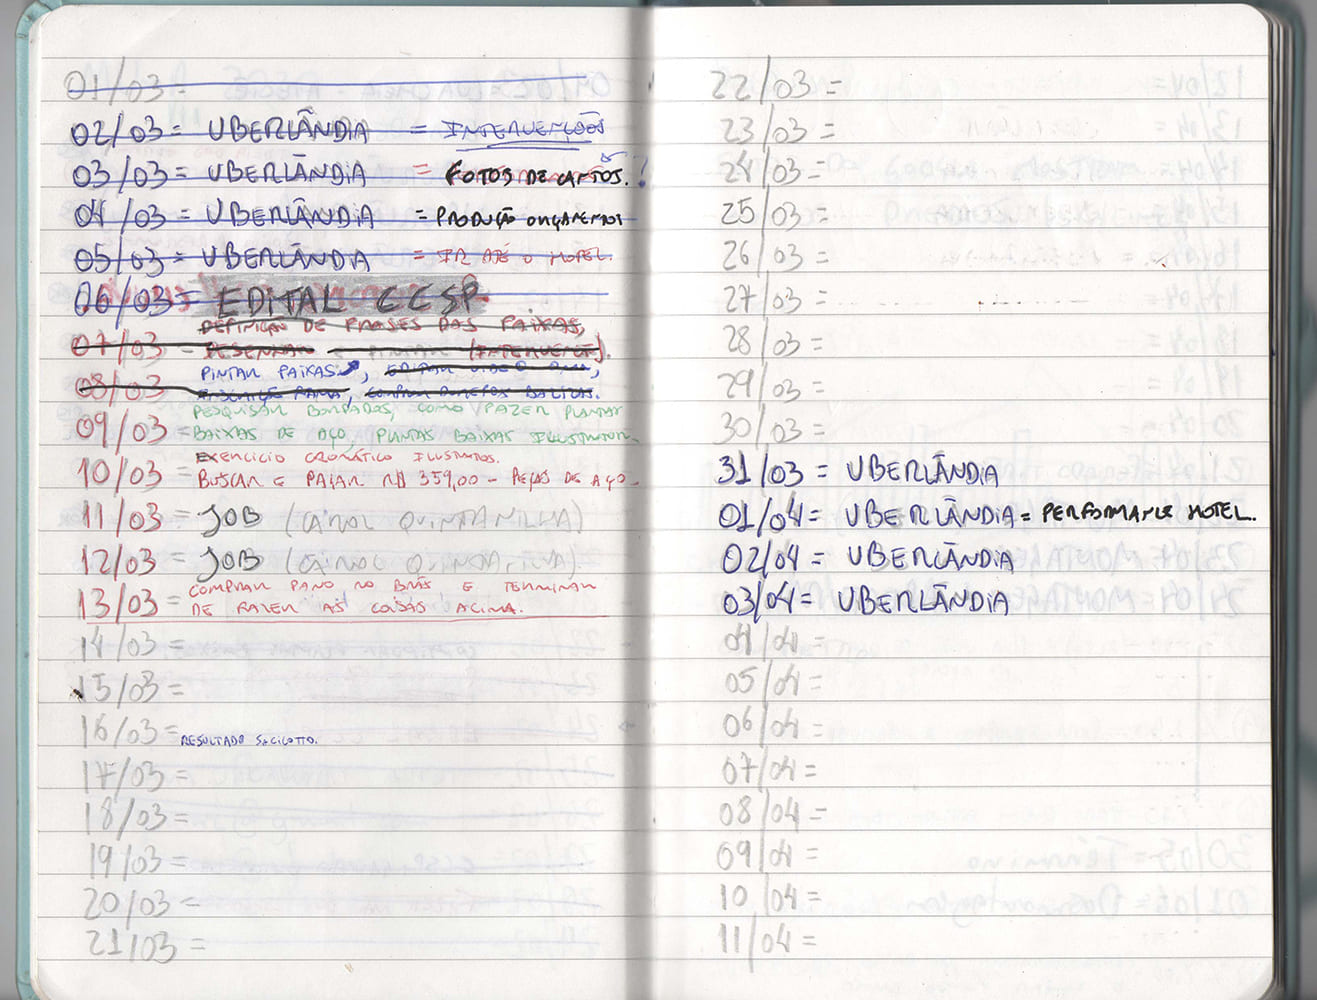 01/03 =
02/03 = UBERLÂNDIA = INTERVENÇÕES
03/03 = UBERLÂNDIA = FOTOS DE CARTOS. ?
04/03 = UBERLÂNDIA = PRODUÇÃO ORÇAMENTOS
05/03 = UBERLÂNDIA = IR ATÉ O HOTEL.
06/03 = EDITAL CCSP
DEFINIÇÃO DE FRASES DAS FAIXAS,
07/03 = DESENHAR E PINTAR (INTERVENÇÃO).
PINTAR FAIXAS, EDITAR VIDEO
08/03
PESQUISAR BORDADOS, COMO FAZER PLANTAS
09/03 = BAIXAS DE AÇO, PLANTAS BAIXAS ILUSTRATOR.
EXERCICIO CROMÁTICO ILUSTRATOR.
10/03 = BUSCAR E PAGAR R$ 359,00 - PEÇAS DE AÇO.
11/03 = JOB (CAROL QUINTANILHA)
12/03 = JOB (CAROL QUINTANILHA)
COMPRAR PANO NO BRÁS E TERMINAR
13/03 = DE FAZER AS COISAS ACIMA.
14/03 =
15/03 =
16/03 = RESULTADO SACILOTTO.
17/03 =
18/03 =
19/03 =
20/03 =
21/03 =
22/03 =
23/03 =
24/03 =
25/03 =
26/03 =
27/03 =
28/03 =
29/03 =
30/03 =
31/03 = UBERLÂNDIA
01/04 = UBERLÂNDIA = PERFORMANCE HOTEL.
02/04 = UBERLÂNDIA
03/04 = UBERLÂNDIA
04/04 =
05/04 =
06/04 =
07/04 =
08/04 =
09/04 =
10/04 =
11/04 =